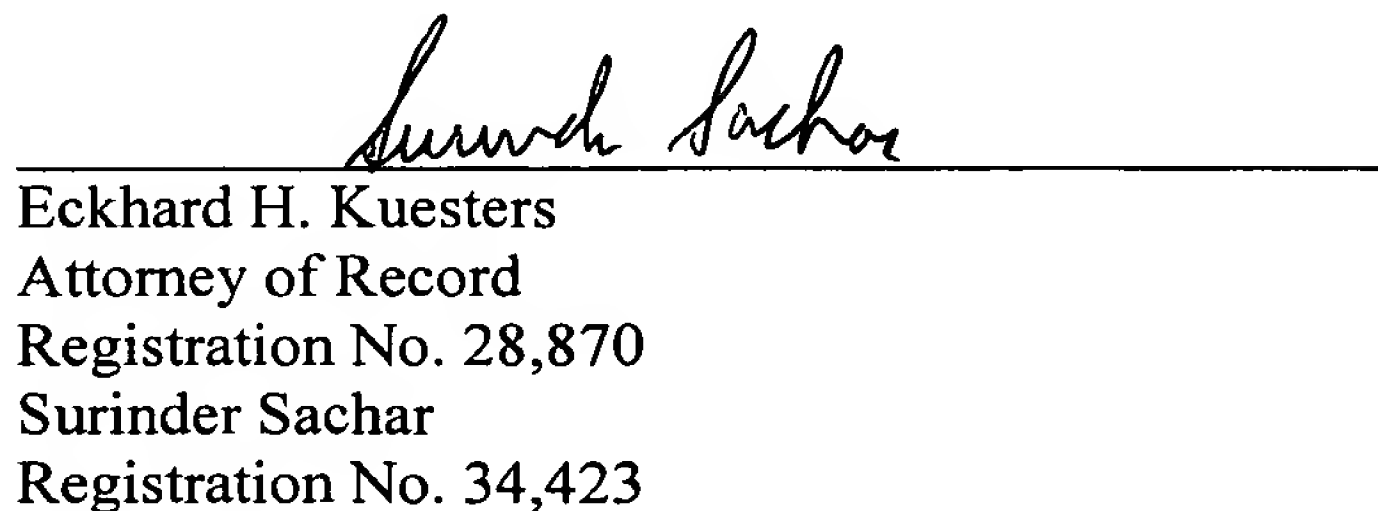 Surinder Sachar
Eckhard H. Kuesters
Attorney of Record
Registration No. 28,870
Surinder Sachar
Registration No. 34,423